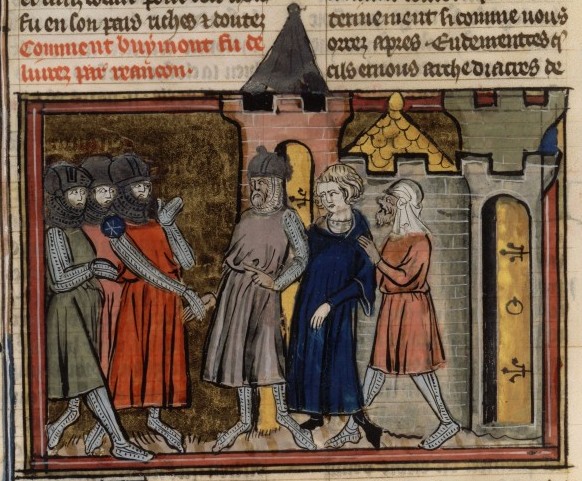 fu en son pais riches & toutez
Comment buymont fu de
liurez par reancon.
ternement si comme uous
orrez apres. Endementres q̃
cils ernous archediacres de